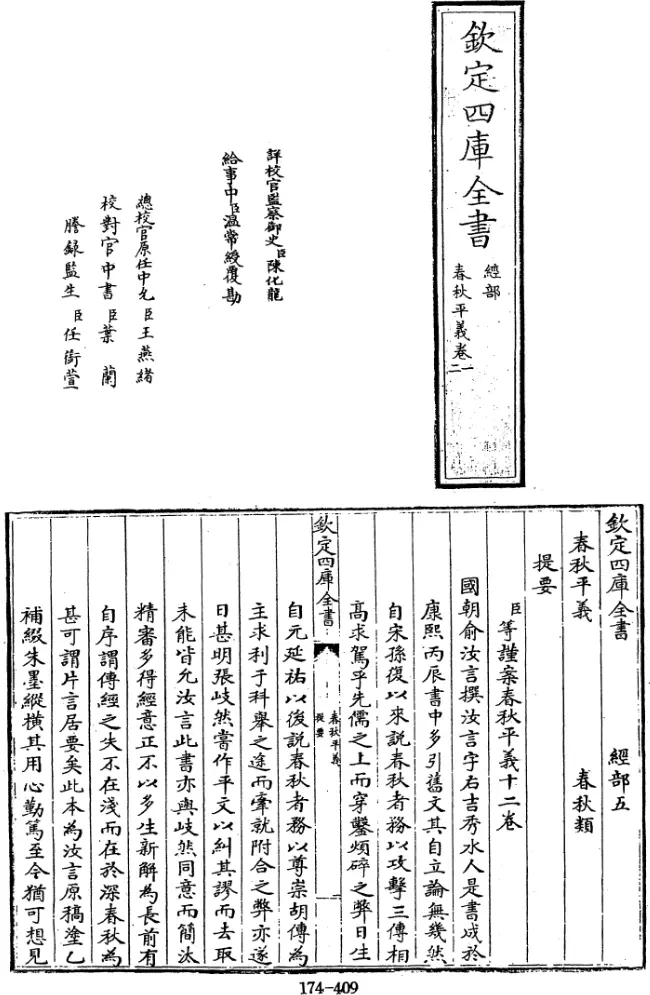 欽定四庫全書
經部
春秋平義卷一
二
詳校官監察御史臣陳化龍
給事中臣温常綬覆勘
總校官原任中允臣王燕緒
校對官中書臣葉蘭
謄錄監生臣任銜萱
欽定四庫全書 經部五
春秋平義 春秋類
提要
臣等謹案春秋平義十二卷
國朝俞汝言撰汝言字右吉秀水人是書成於
康熙丙辰書中多引舊文其自立論無幾然
自宋孫復以來說春秋者務以攻擊三傳相
高求駕乎先儒之上而穿鑿煩碎之弊日生
欽定四庫全書
春秋平義
提要
自元延祐以後説春秋者務以尊崇胡傳為
主求利于科舉之途而牽就附合之弊亦遂
日甚明張岐然嘗作平文以糾其謬而去取
未能皆允汝言此書亦與岐然同意而簡汰
精審多得經意正不以多生新解為長前有
自序謂傳經之失不在淺而在於深春秋為
甚可謂片言居要矣此本為汝言原稿塗乙
補綴朱墨縱橫其用心勤篤至今猶可想見
174-409